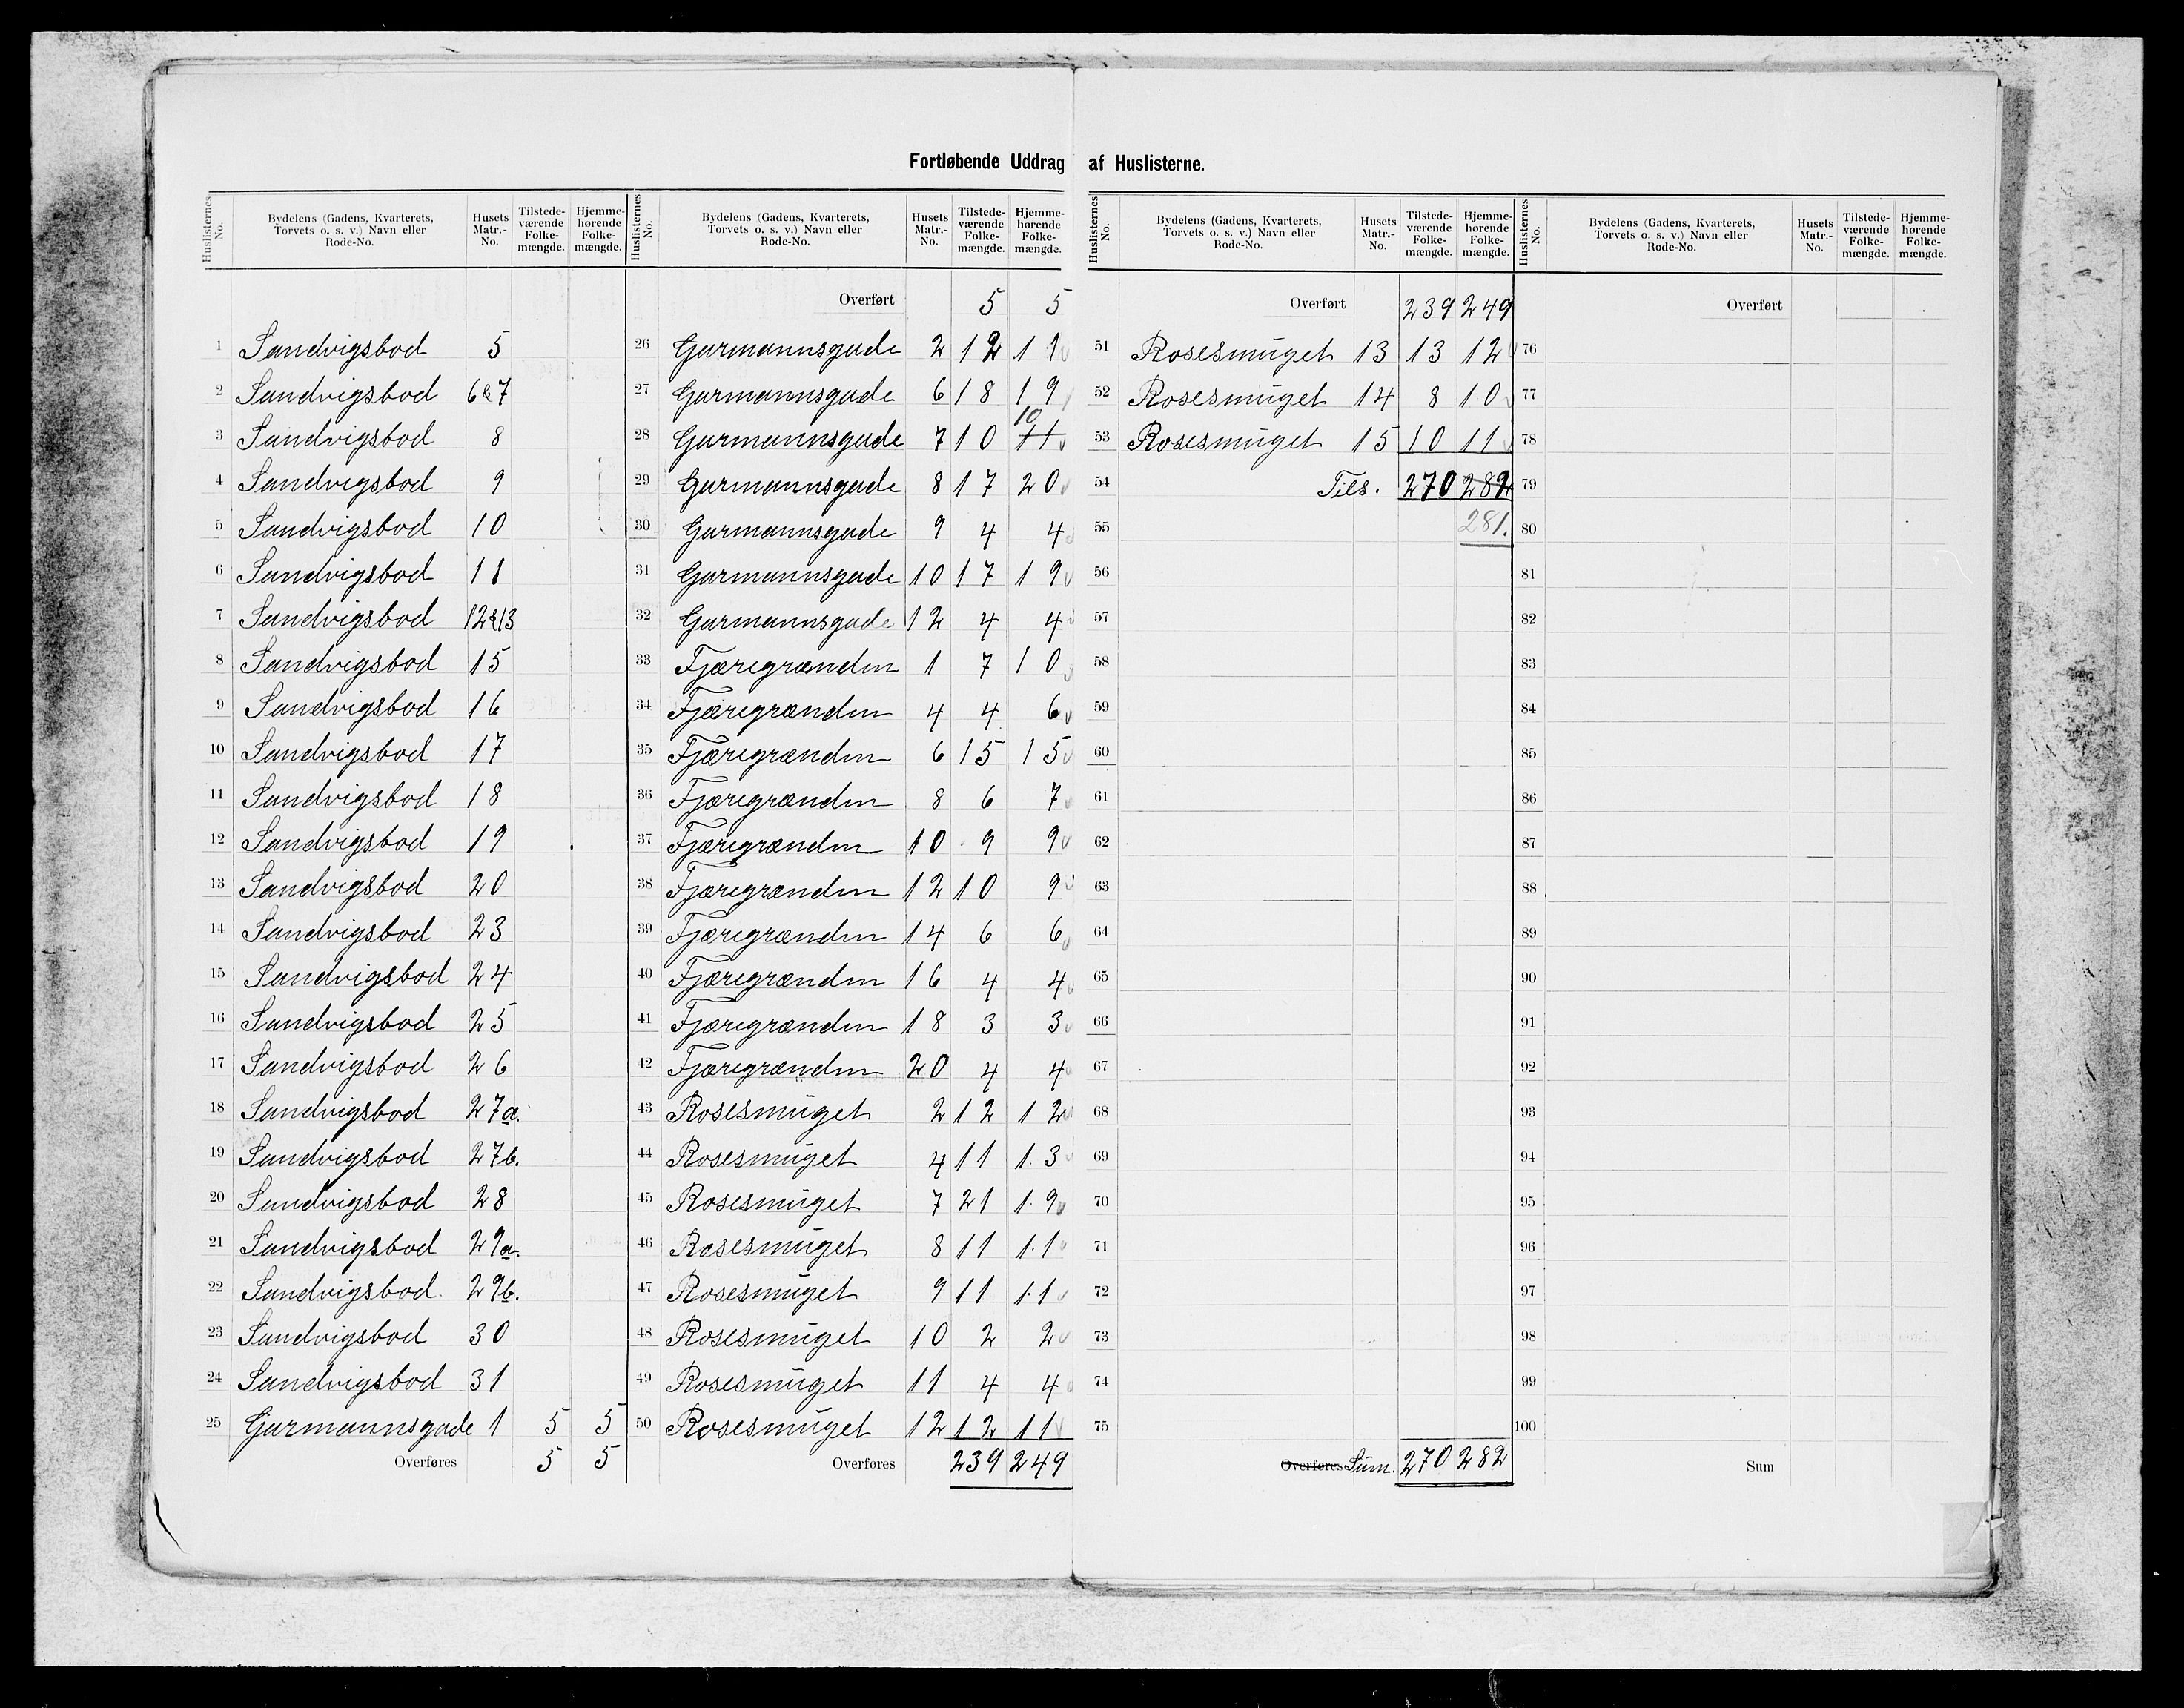 Fortløbende Uddrag af Huslisterne.
Huslisternes No. | Bydelens (Gadens, Kvarterets, Torvets o. s. v.) Navn eller Rode-No. | Husets Matr.-No. | Tilstedeværende Folkemængde. | Hjemmehørende Folkemængde.
1 Sandvigsbod 5
2 Sandvigsbod 6&7
3 Sandvigsbod 8
4 Sandvigsbod 9
5 Sandvigsbod 10
6 Sandvigsbod 11
7 Sandvigsbod 12&13
8 Sandvigsbod 15
9 Sandvigsbod 16
10 Sandvigsbod 17
11 Sandvigsbod 18
12 Sandvigsbod 19
13 Sandvigsbod 20
14 Sandvigsbod 23
15 Sandvigsbod 24
16 Sandvigsbod 25
17 Sandvigsbod 26
18 Sandvigsbod 27a.
19 Sandvigsbod 27b.
20 Sandvigsbod 28
21 Sandvigsbod 29a.
22 Sandvigsbod. 29b.
23 Sandvigsbod 30
24 Sandvigsbod 31
25 Garmannsgade 1 5 5
Overføres 5 5
Huslisternes No. | Bydelens (Gadens, Kvarterets, Torvets o. s. v.) Navn eller Rode-No. | Husets Matr.-No. | Tilstedeværende Folkemængde. | Hjemmehørende Folkemængde.
Overført 5 5
26 Garmannsgade 2 12 11
27 Garmannsgade 6 18 19
28 Garmannsgade 7 10 11 10
29 Garmannsgade 8 17 20
30 Garmannsgade 9 4 4
31 Garmannsgade 10 17 19
32 Garmannsgade 12 4 4
33 Fjæregrænden 1 7 10
34 Fjæregrænden 4 4 6
35 Fjæregrænden 6 15 15
36 Fjæregrænden 8 6 7
37 Fjæregrænden 10 9 9
38 Fjæregrænden 12 10 9
39 Fjæregrænden 14 6 6
40 Fjæregrænden 16 4 4
41 Fjæregrænden 18 3 3
42 Fjæregrænden 20 4 4
43 Rosesmuget 2 12 12
44 Rosesmuget 4 11 13
45 Rosesmuget 7 21 19
46 Rosesmuget 8 11 11
47 Rosesmuget 9 11 11
48 Rosesmuget 10 2 2
49 Rosesmuget 11 4 4
50 Rosesmuget 12 12 11
Overføres 239 249
Huslisternes No. | Bydelens (Gadens, Kvarterets, Torvets o. s. v.) Navn eller Rode-No. | Husets Matr.-No. | Tilstedeværende Folkemængde. | Hjemmehørende Folkemængde.
Overført 239 249
51 Rosesmuget 13 13 12
52 Rosesmuget 14 8 10
53 Rosesmuget 15 10 11
54 Tils. 270 282
55 281.
56
57
58
59
60
61
62
63
64
65
66
67
68
69
70
71
72
73
74
75
Overføres Sum. 270 282
Huslisternes No. | Bydelens (Gadens, Kvarterets, Torvets o. s. v.) Navn eller Rode-No. | Husets Matr.-No. | Tilstedeværende Folkemængde. | Hjemmehørende Folkemængde.
Overført
76
77
78
79
80
81
82
83
84
85
86
87
88
89
90
91
92
93
94
95
96
97
98
99
100
Sum